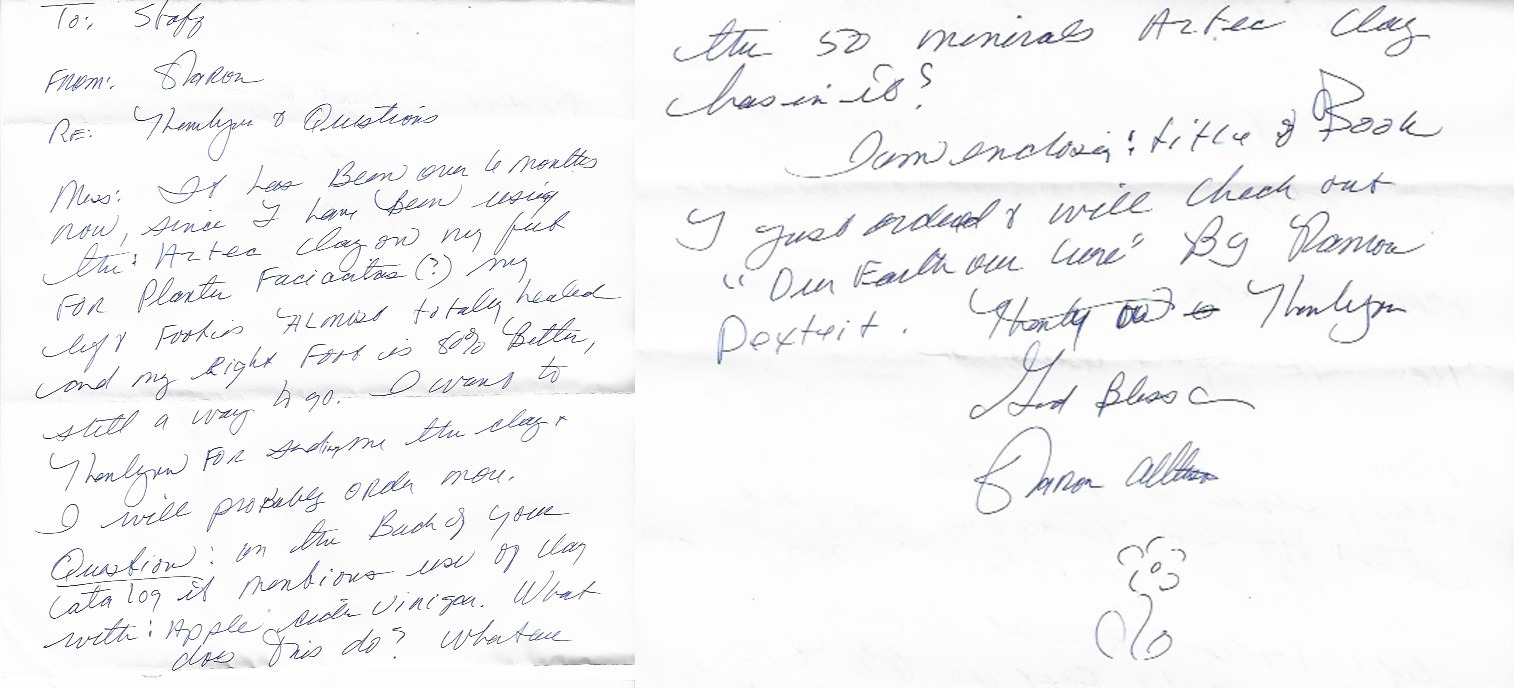 To: Staff
From: Sharon
RE: Thankyou & Questions
Mess: It has Been over 6 months
now, since I have been using
the: Aztec clay on my feet
FOR Planter Faciaitas (?) my
left Foot is ALMOST totaly healed
and my Right Foot is 80% Better,
still a way to go. I want to
Thankyou FOR sending me the clay &
I will probably order more.
Question: on the Back of your
catalog it mentions use of clay
with: Apple cider Vinigar. What
does this do? What are
the 50 minerals Aztec Clay
has in it?
I am enclosing: title of Book
I just ordered & will check out
"Our Earth our cure" By Ramon
Dextreit. Thankyou
God Bless
Sharon